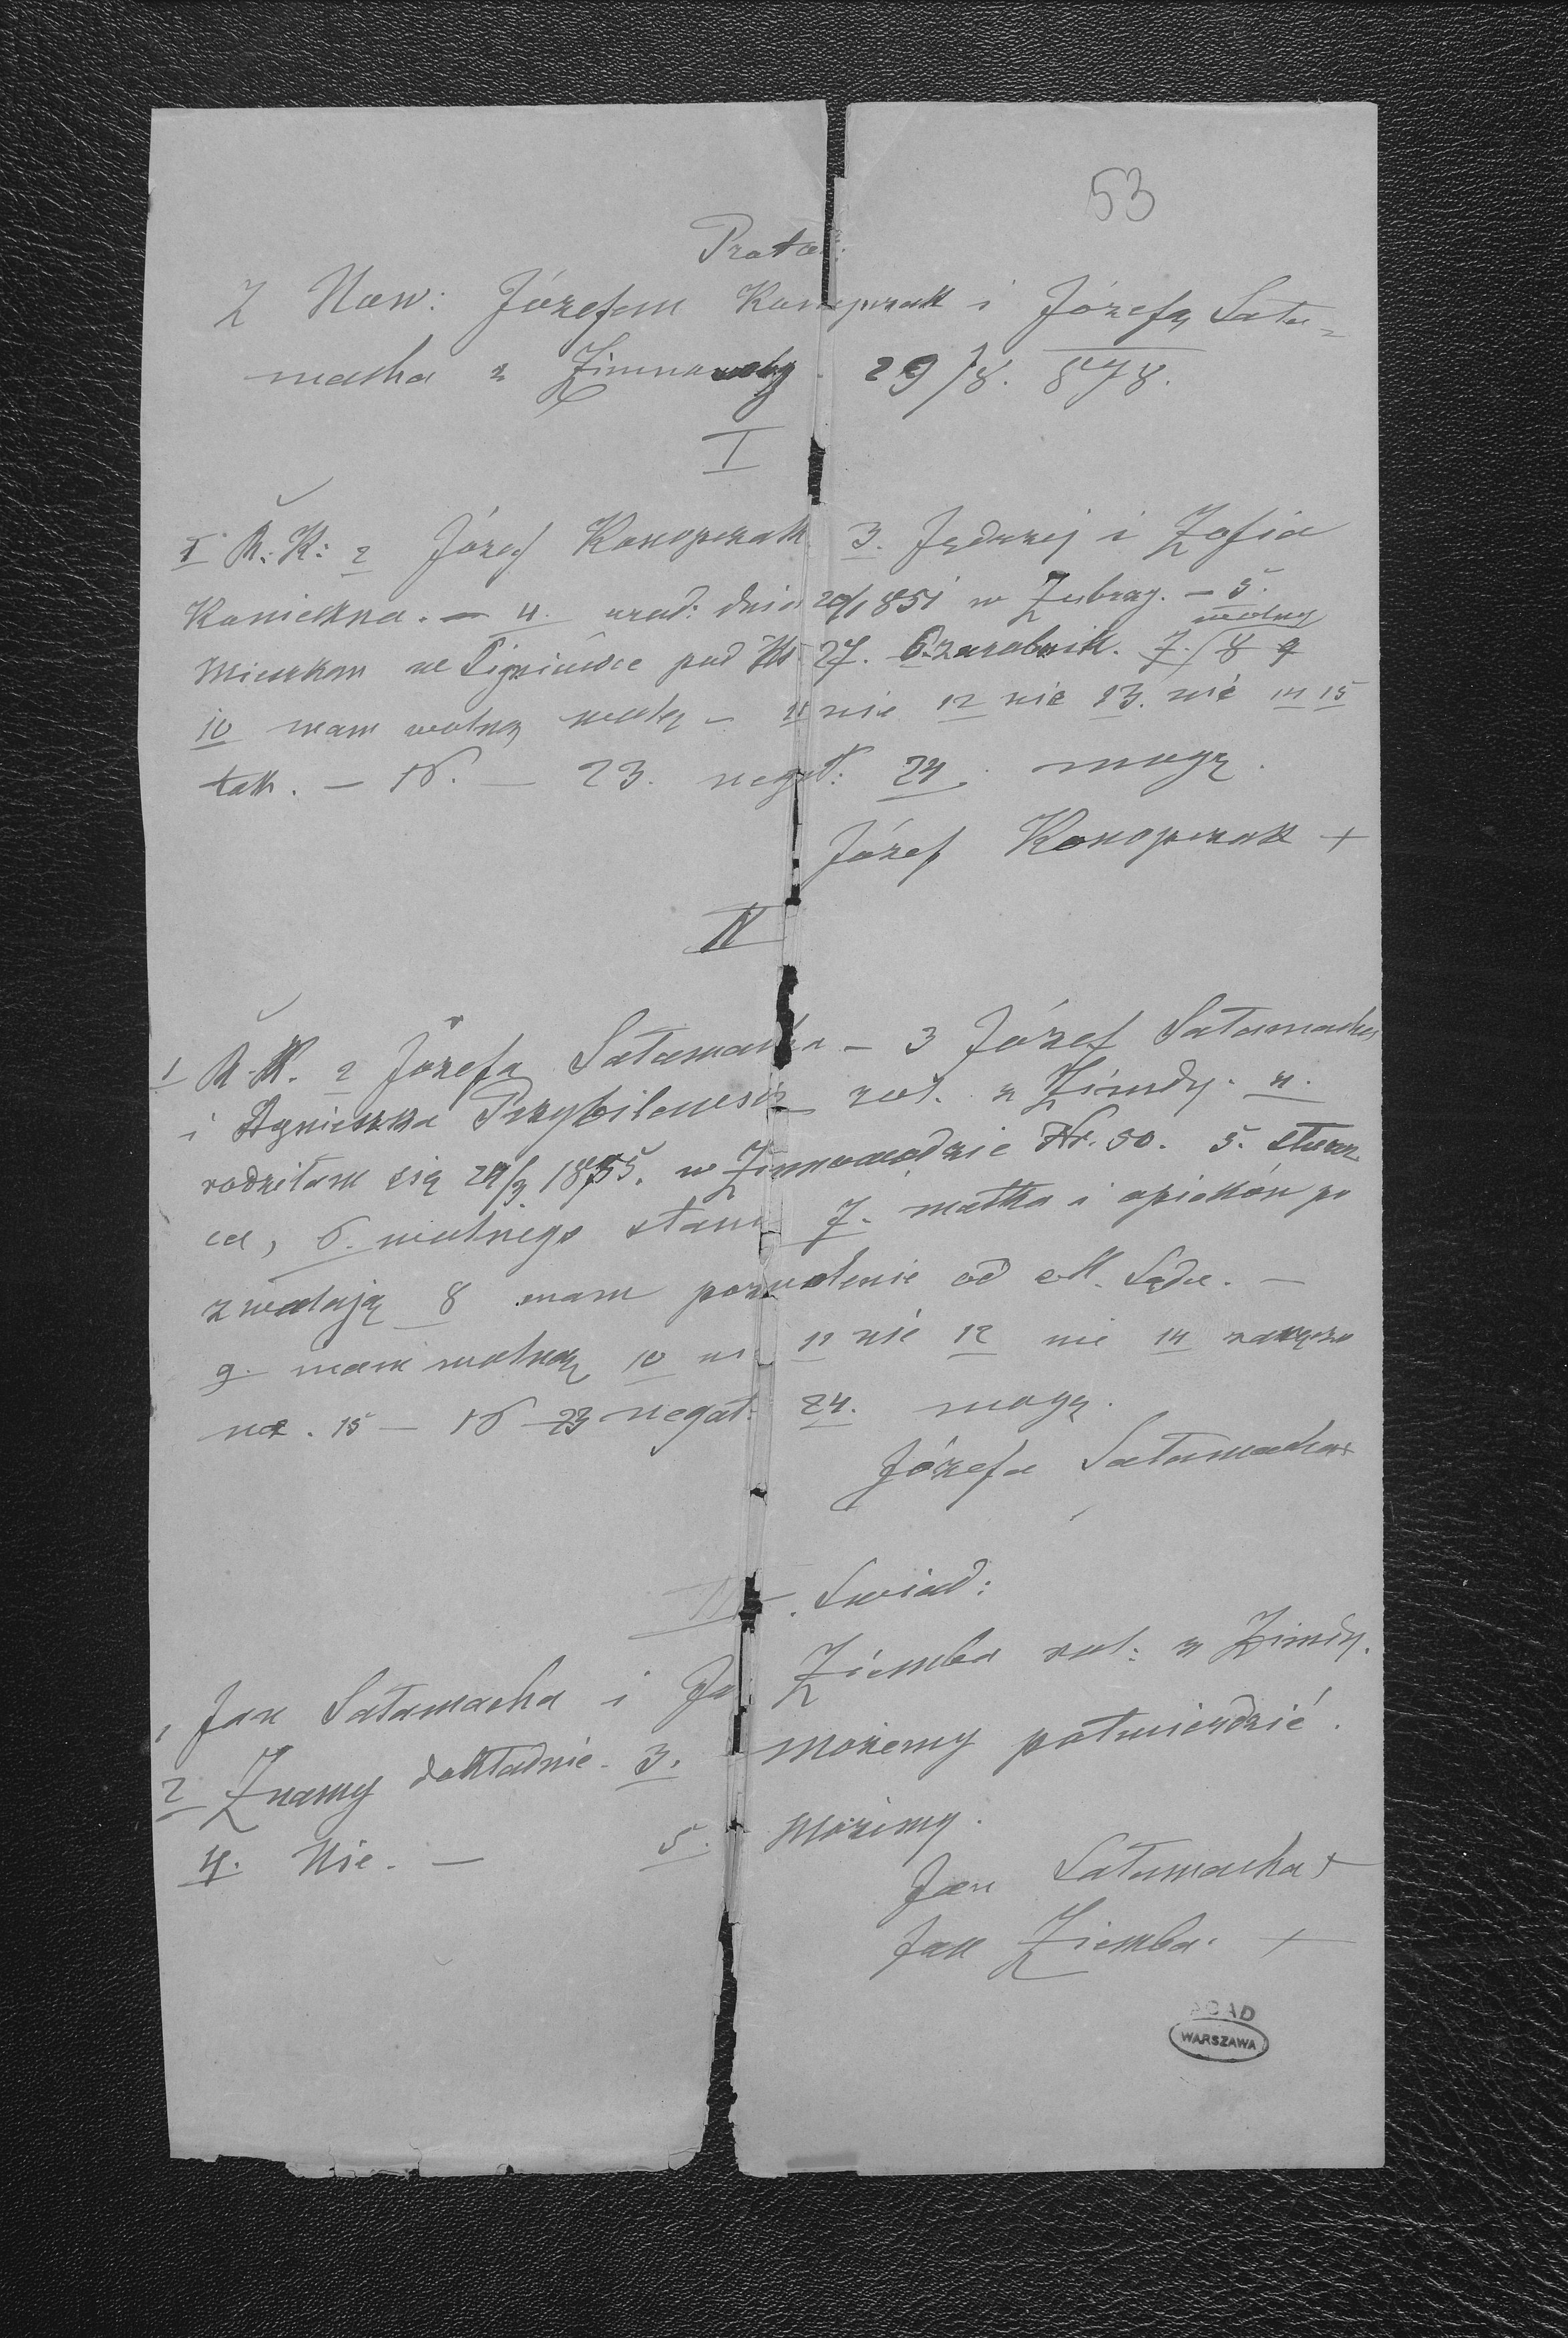 53
Protok:
Z Naw: Józefem Konopczak i Józefą Sała-
macha z Zimnowody 29/8. 878.
I
1 R: K: 2 Józef Konopczak 3. Jędrzej i Zofia
Konieczna. — 4. urod: dnia 1851 w Zubrzy. — 5.
wolny
Mieszkam w pod Nr 27. 6. zarobnik. 7. / 8 9
10 mam wolną wolę — 11 nie 12 nie 13. nie 14 15
tak. — 16. — 23. negat: 24. mogę.
Józef Konopczak +
II
1 R. K. 2 Józefa Sałamacha — 3 Józef Sałamacha
i Agnieszka rol. z Zimdy. 4.
rodziłam się 1855. w Zimnowodzie Nr. 50. 5. służą
ca, 6. wolnego stanu 7. matka i opiekun po
zwalają 8 mam pozwolenie od Sądu. —
9. mam wolną 10 11 nie 12 nie 14 zaręczo
na. 15 — 16 — 23 negat: 24. mogę.
Józefa Sałamacha +
III. Swiad:
1 Jan Sałamacha i Ja Ziemba rol: z Zimdy.
2 Znamy dokładnie. 3. możemy potwierdzić.
4. Nie. — 5. Możemy.
Jan Sałamacha +
Jan Ziemba. +
AGAD
WARSZAWA